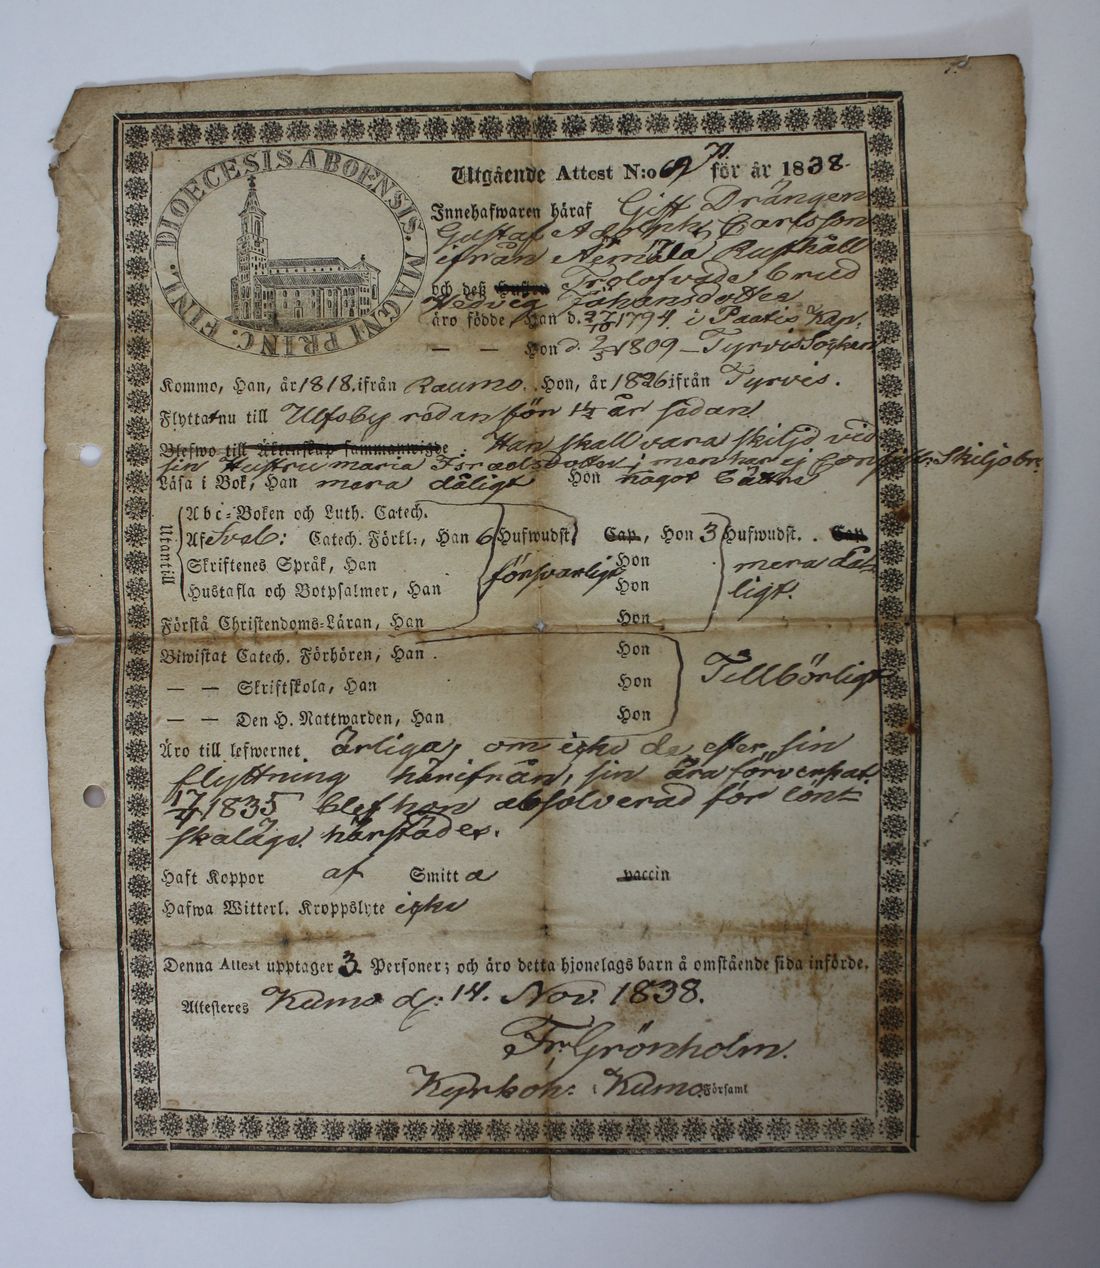 DIOECESIS ABOENSIS. MAGNI PRINC. FINL.
Utgående Attest N:o för år 1838.
Innehafwaren häraf Gift Drängen
Gustaf Adolph Carlsson
ifrån Rusthåll
och deß hustru Trolofvade brud
Hedvig Johansdotter
äro födde, Han d. 27/10 1794. i Kap.
— — Hon d. 2/3 1809 — Tyrvis Socken
Kommo, Han, år 1818. ifrån Raumo. Hon, år 1826 ifrån Tyrvis.
Flyttat nu till Ulfsby redan för 1½ år sedan
Blefwo till Äktenskap sammanwigde. Han skall vara skiljd vid
sin Hustru Maria Israelsdotter; men har ej Skiljobr.
Läsa i Bok, Han mera dåligt Hon något bättre
Utantill
Abc-Boken och Luth. Catech.
Af Sveb: Catech. Förkl., Han 6 Hufwudst. Cap., Hon 3 Hufwudst. . Cap.
Skriftenes Språk, Han Hon mera då-
försvarligt ligt.
Hustafla och Botpsalmer, Han Hon
Förstå Christendoms-Läran, Han Hon
Biwistat Catech. Förhören, Han . Hon
— — Skriftskola, Han Hon Tillbörligt
— — Den H. Nattwarden, Han Hon
Äro till lefwernet ärliga, om icke de efter sin
flyttning härifrån, sin ära förverkat.
1835 blef hon absolverad för löns-
skaläge härstädes.
Haft Koppor af Smitta vaccin
Hafwa Witterl. Kroppslyte icke
Denna Attest upptager 3. Personer; och äro detta hjonelags barn å omstående sida införde.
Attesteres Kumo d. 14. Nov. 1838.
Fr. Grönholm.
Kyrkoh: i Kumo Församl